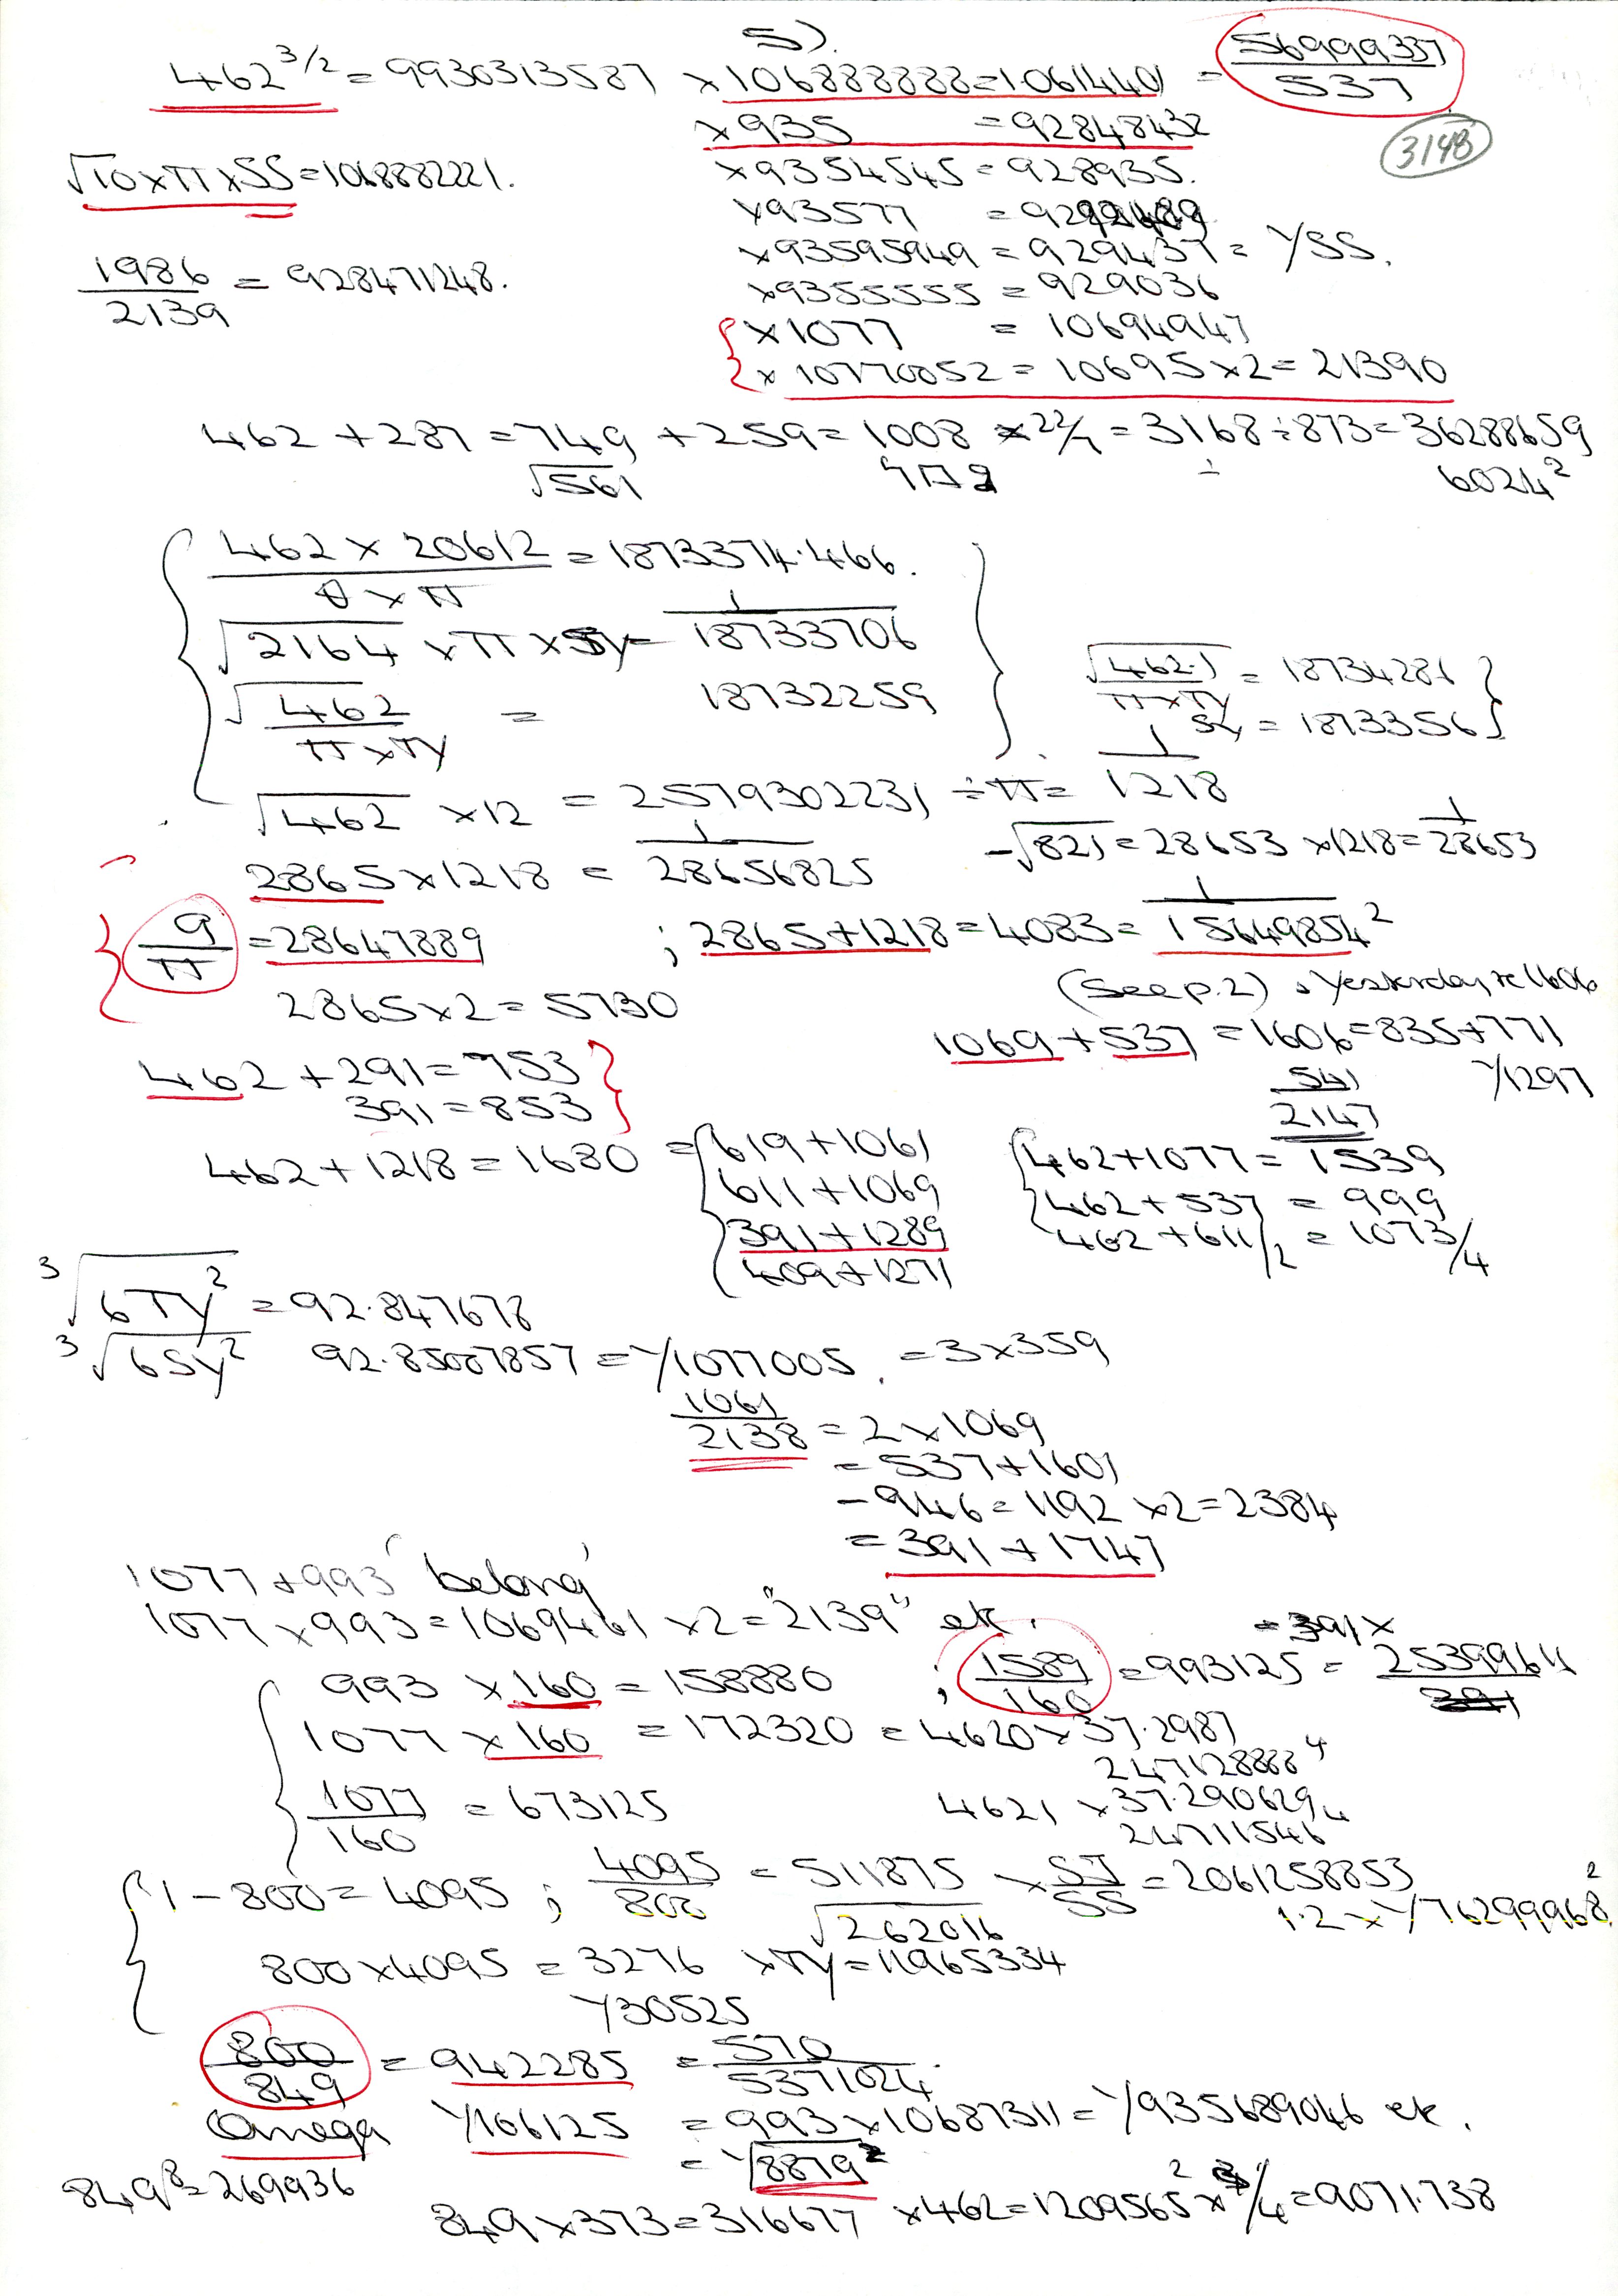 5).
462^3/2 = 9930313587 × 106888888 = 10614401 = 56999337/537
× 935 = 92848432
3148
√10 × π × SS = 1068882221.
× 9354545 = 928935.
× 93577 =
× 93595949 = 929437 = Y/SS.
1986/2139 = 928471248.
× 9355555 = 929036
{ × 1077 = 10694947
× 10770052 = 10695 × 2 = 21390
462 + 287 = 749 + 259 = 1008 × 22/7 = 3168 ÷ 873 = 36288659
√561 ÷ 6024²
462 × 20612 / θ × π = 1873374.466.
√2164 × π × SY = 1/18733706
√462/π × TY = 18732259
√462.1/π × TY = 18734281
SY = 1873356
√462 × 12 = 2579302231 ÷ π = 1/1218
-√821 = 28653 × 1218 = 1/28653
2865 × 1218 = 1/28656825
9/π = 28647889 ; 2865 + 1218 = 4083 = 1/15649854²
(See p.2) Yesterday re 1606
2865 × 2 = 5730
1069 + 537 = 1606 = 835 + 771
541/2147 Y/1297
462 + 291 = 753
391 = 853
462 + 1218 = 1680 = { 619 + 1061
611 + 1069
391 + 1289
409 + 1271
{ 462 + 1077 = 1539
462 + 537 = 999
462 + 611/2 = 1073/4
³√6TY² = 92.847678
³√6SY² 92.85007857 = Y/1077005. = 3 × 359
1061/2138 = 2 × 1069
= 537 + 1601
- 946 = 1192 × 2 = 2384
= 391 + 1747
1077 + 993 'belong'
1077 × 993 = 1069461 × 2 = "2139" etc.
= 391 ×
993 × 160 = 158880 ; 1589/160 = 993125 = 25399611
1077 × 160 = 172320 = 4620 × 37.2987
247128888⁴
1077/160 = 673125 4621 × 37.290629
24711546⁴
1 - 800 = 4095 ; 4095/800 = 511875 × SJ/SS = 2061258853
√262016 1.2 × Y/76299968²
800 × 4095 = 3276 × TY = 11965334
Y/30525
800/849 = 942285 = 570/5371024.
Omega Y/106125 = 993 × 10687311 = Y/935689046 etc.
= Y/√8879²
849⁸ = 269936
849 × 373 = 316677 × 462 = 1209565² × 3/4 = 9071.738